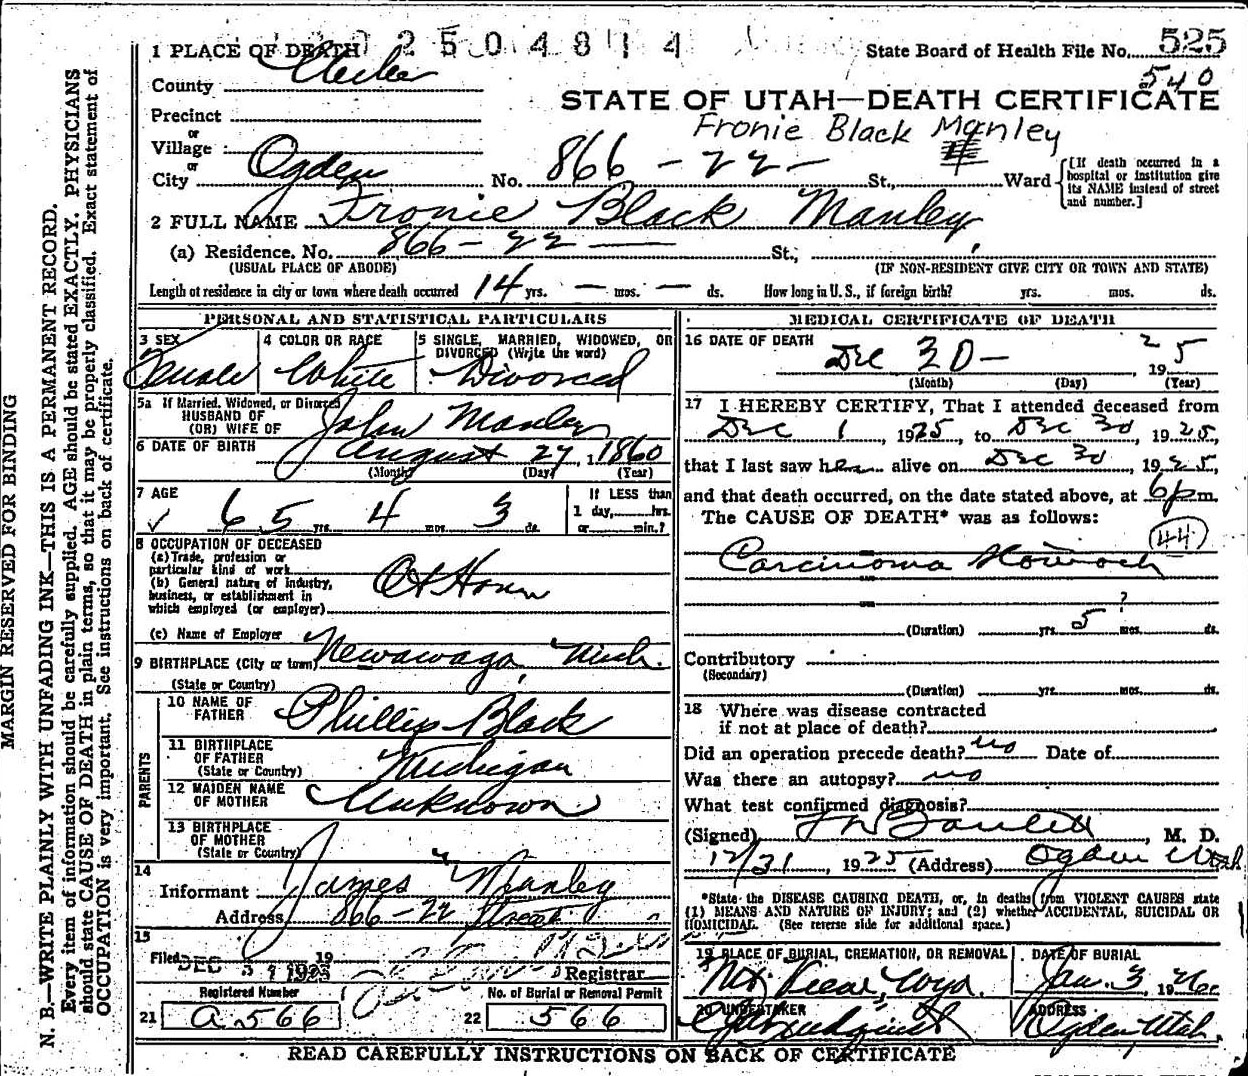 2504814
State Board of Health File No. 525
540
1 PLACE OF DEATH
County Weber
STATE OF UTAH—DEATH CERTIFICATE
Precinct
Fronie Black Manley
or
Village
or
City Ogden No. 866 - 22 - St., Ward
[If death occurred in a
hospital or institution give
its NAME instead of street
and number.]
2 FULL NAME Fronie Black Manley
(a) Residence. No. 866 - 22 St.,
(USUAL PLACE OF ABODE) (IF NON-RESIDENT GIVE CITY OR TOWN AND STATE)
Length of residence in city or town where death occurred 14 yrs. — mos. — ds. How long in U. S., if foreign birth? yrs. mos. ds.
PERSONAL AND STATISTICAL PARTICULARS
3 SEX 4 COLOR OR RACE 5 SINGLE, MARRIED, WIDOWED, OR
DIVORCED (Write the word)
Female White Divorced
5a If Married, Widowed, or Divorced
HUSBAND OF
(OR) WIFE OF John Manley
6 DATE OF BIRTH August 27, 1860
(Month) (Day) (Year)
7 AGE 65 yrs. 4 mos. 3 ds.
If LESS than
1 day, hrs.
or min.?
8 OCCUPATION OF DECEASED
(a) Trade, profession or
particular kind of work At Home
(b) General nature of industry,
business, or establishment in
which employed (or employer)
(c) Name of Employer
9 BIRTHPLACE (City or town) Newawago, Mich.
(State or Country)
PARENTS
10 NAME OF
FATHER Phillip Black
11 BIRTHPLACE
OF FATHER
(State or Country) Michigan
12 MAIDEN NAME
OF MOTHER Unknown
13 BIRTHPLACE
OF MOTHER
(State or Country)
14
Informant James Manley
Address 866 - 22 Street
15
Filed DEC 31 1925 19
Registrar
Registered Number No. of Burial or Removal Permit
21 a.566 22 566
MEDICAL CERTIFICATE OF DEATH
16 DATE OF DEATH Dec 30 — 1925
(Month) (Day) (Year)
17 I HEREBY CERTIFY, That I attended deceased from
Dec 1, 1925, to Dec 30, 1925,
that I last saw her alive on Dec 30, 1925,
and that death occurred, on the date stated above, at 6 p m.
The CAUSE OF DEATH* was as follows:
44
Carcinoma Stomach
?
(Duration) yrs. 5 mos. ds.
Contributory
(Secondary)
(Duration) yrs. mos. ds.
18 Where was disease contracted
if not at place of death?
Did an operation precede death? no Date of
Was there an autopsy? no
What test confirmed diagnosis?
(Signed) M. D.
12/31, 1925 (Address) Ogden Utah
*State the DISEASE CAUSING DEATH, or, in deaths from VIOLENT CAUSES state
(1) MEANS AND NATURE OF INJURY; and (2) whether ACCIDENTAL, SUICIDAL OR
HOMICIDAL. (See reverse side for additional space.)
19 PLACE OF BURIAL, CREMATION, OR REMOVAL DATE OF BURIAL
Mt. View, Wyo. Jan. 3, 1926
20 UNDERTAKER ADDRESS
Ogden, Utah
READ CAREFULLY INSTRUCTIONS ON BACK OF CERTIFICATE
MARGIN RESERVED FOR BINDING
N. B.—WRITE PLAINLY WITH UNFADING INK—THIS IS A PERMANENT RECORD.
Every item of information should be carefully supplied. AGE should be stated EXACTLY. PHYSICIANS
should state CAUSE OF DEATH in plain terms, so that it may be properly classified. Exact statement of
OCCUPATION is very important. See instructions on back of certificate.